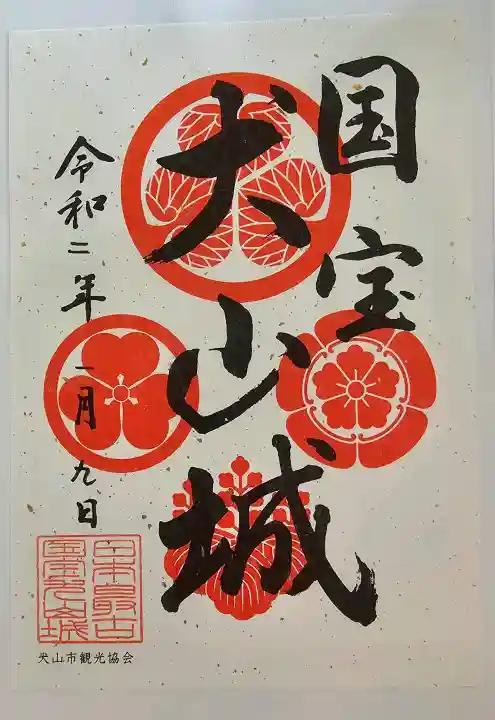 国宝
犬山城
令和二年 一月九日
日本最古
国宝犬山城
犬山市観光協会